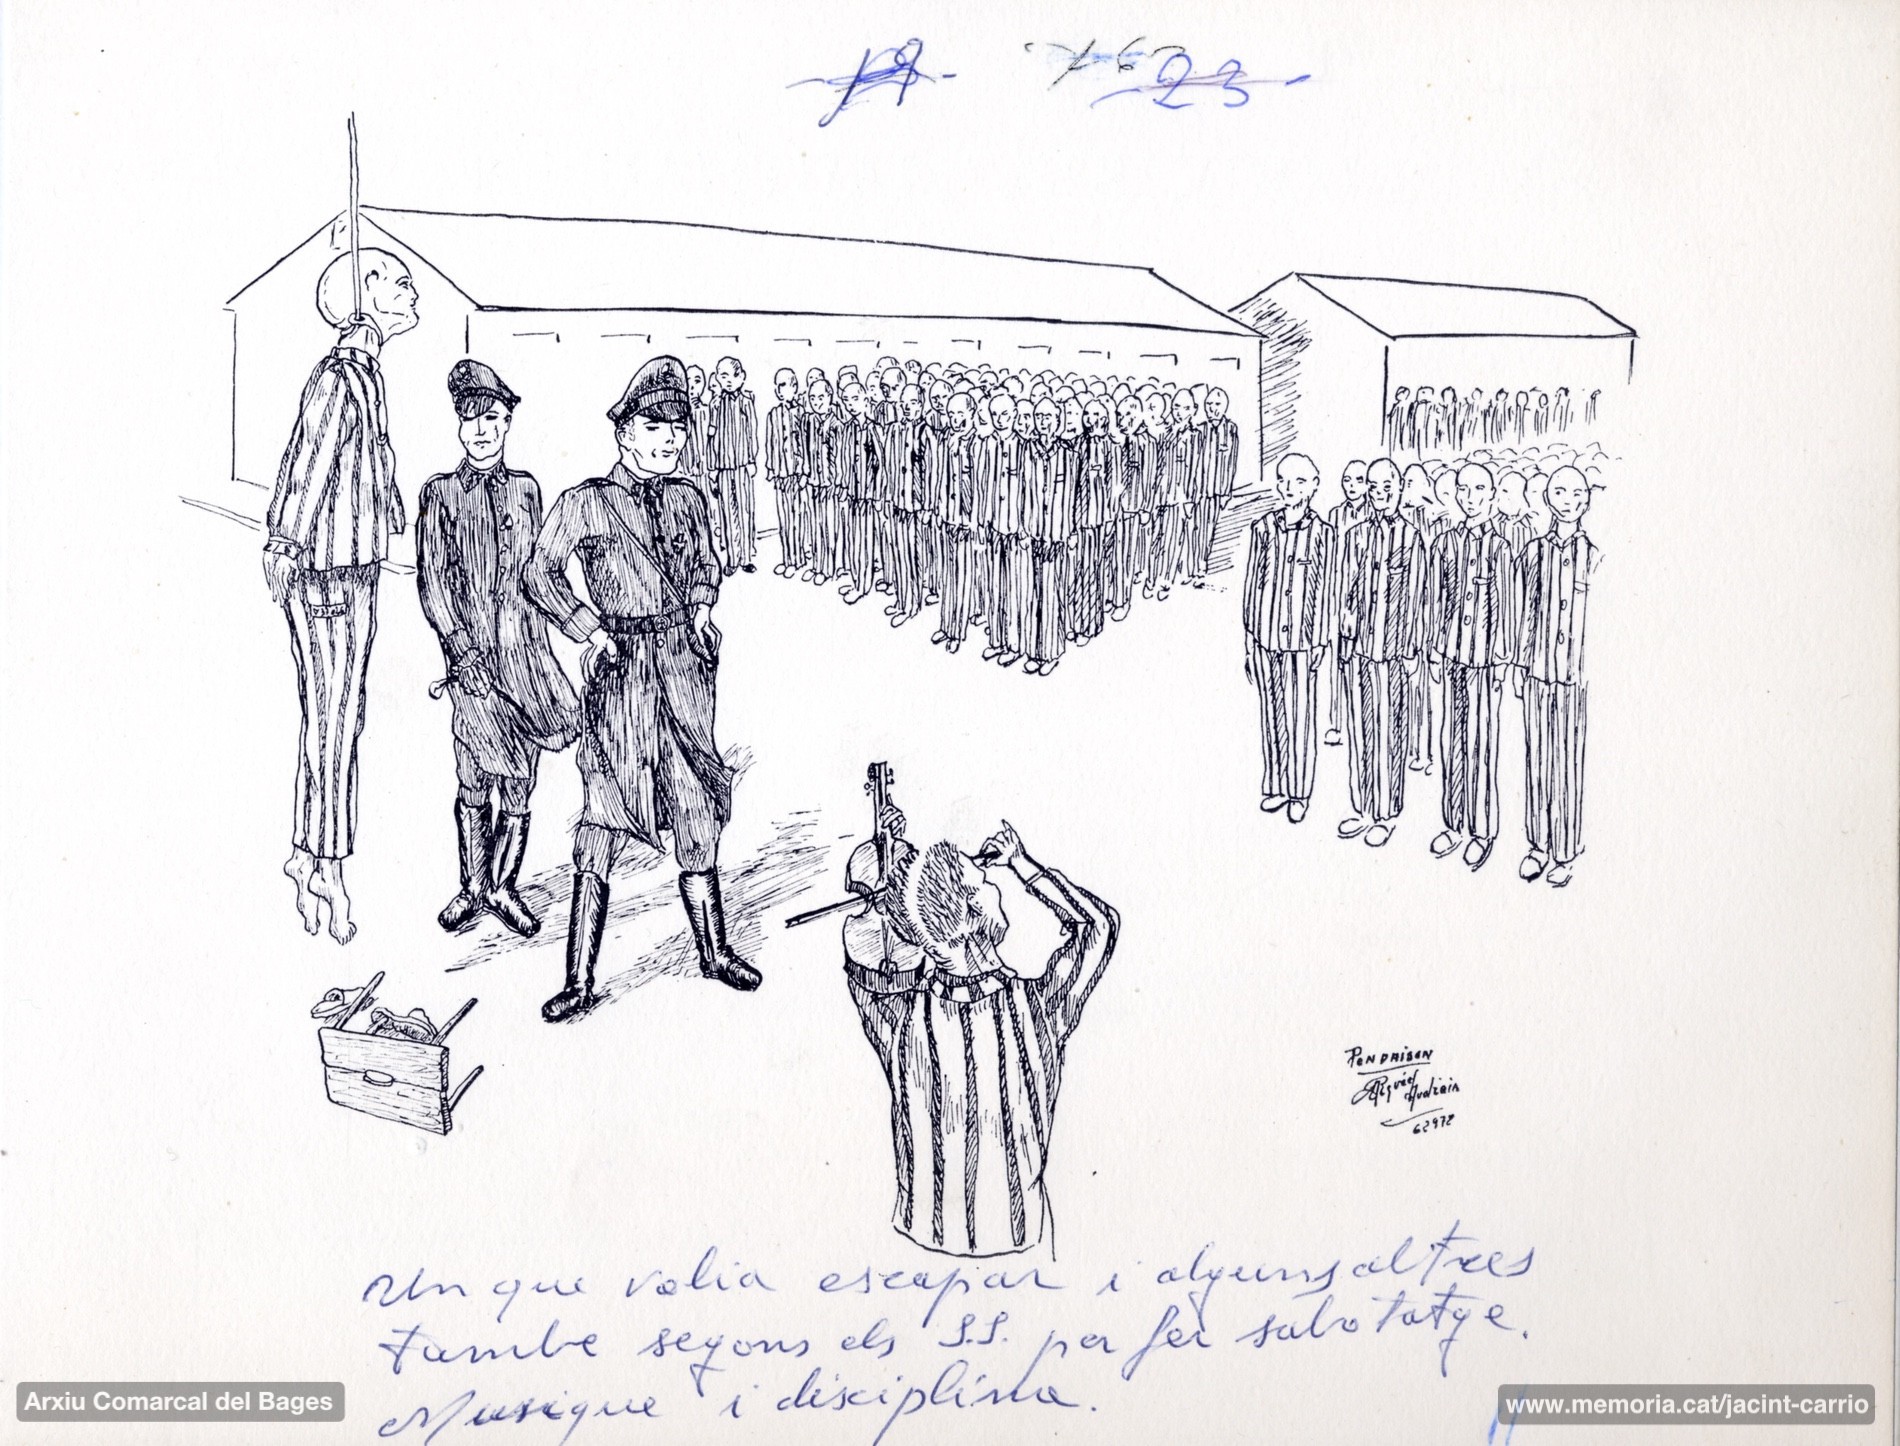 19 -
23 -
PENDAISON
62972
Un que volia escapar i alguns altres
tambe segons els S.S. per fer sabotatge.
Musique i disciplina.
Arxiu Comarcal del Bages
www.memoria.cat/jacint-carrio